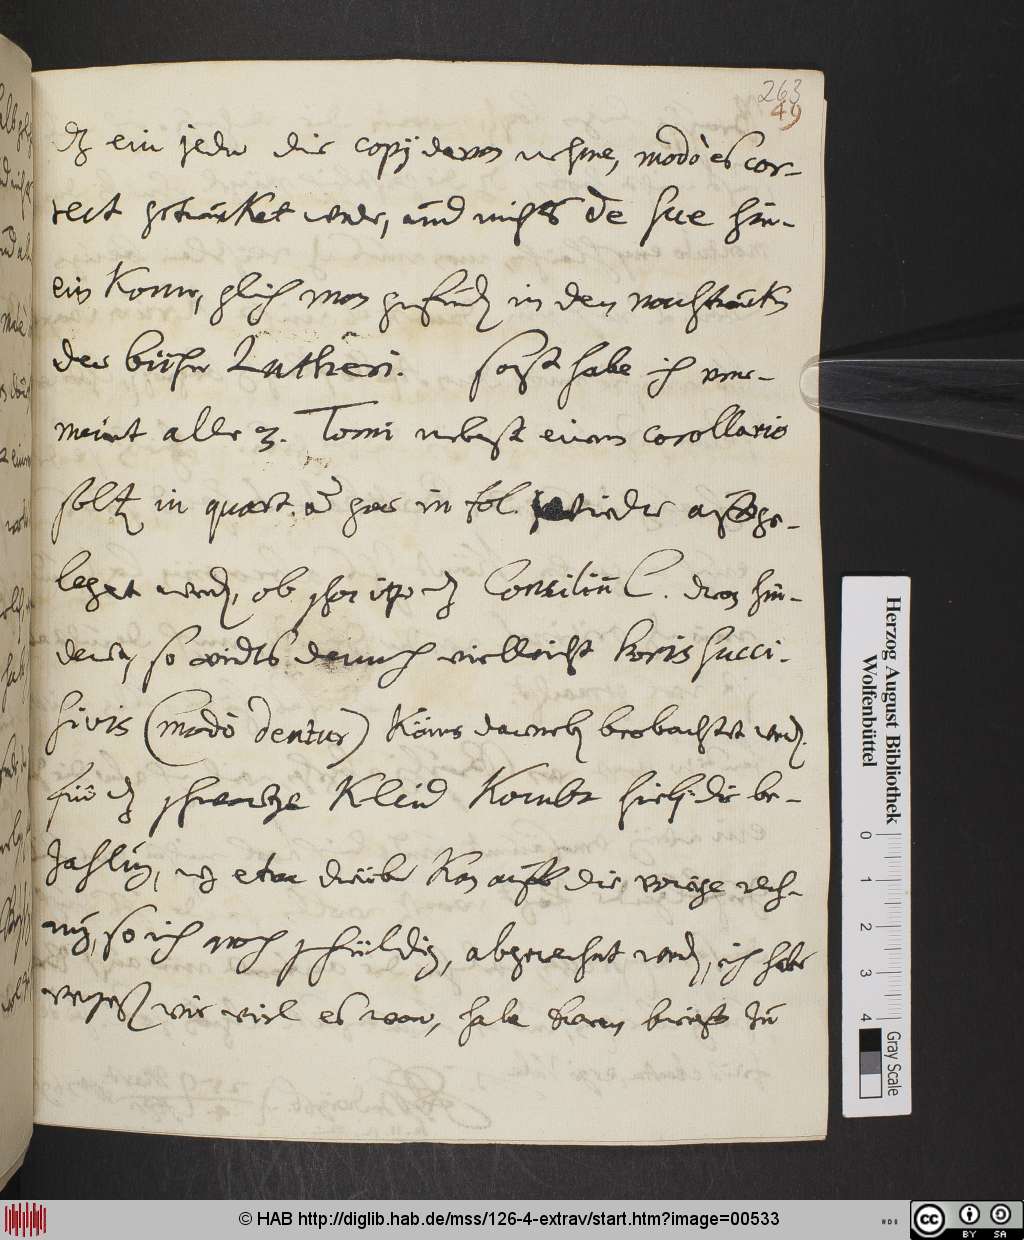 263
49
dz ein jeder die copij davon nehme, modò es cor-
rect getrucket werde, und nichts de sue hin-
ein komme, glich man gefunden in den nachtrucken
der bücher Lutheri. Sonst habe ich ver-
meint alle 3. Tomi nebest einem corollario
solten in quart. oder gar in fol. wieder auffge-
leget werden, ob schon itzo dz Consilium C. dran hin-
dern, so wirdts dennoch vielleicht horis succi-
sivis (modò dentur) können darneben beobachtet werden.
für dz schwartze Kleid kombt hiebei die be-
zahlung, wz etwa drüber kan auff die vorige rech-
nung, so ich noch schüldig, abgerechnet werden, ich habe
vergessen wie viel es war, habe deren brieff zu
Herzog August Bibliothek
Wolfenbüttel
0 1 2 3 4
Gray Scale
© HAB http://diglib.hab.de/mss/126-4-extrav/start.htm?image=00533
cc BY SA